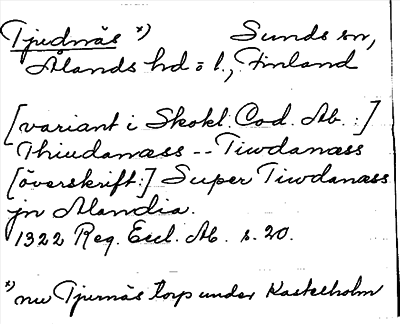 Tjudnäs *) Sunds sn,
Ålands hd o l., Finland
[variant i Skokl. Cod. Ab. :]
Thiudanæss -- Tiwdanæss
[överskrift:] Super Tiwdanæss
jn Alandia.
1322 Reg. Eccl. Ab. s. 20.
*) nu Tjurnäs torp under Kastelholm